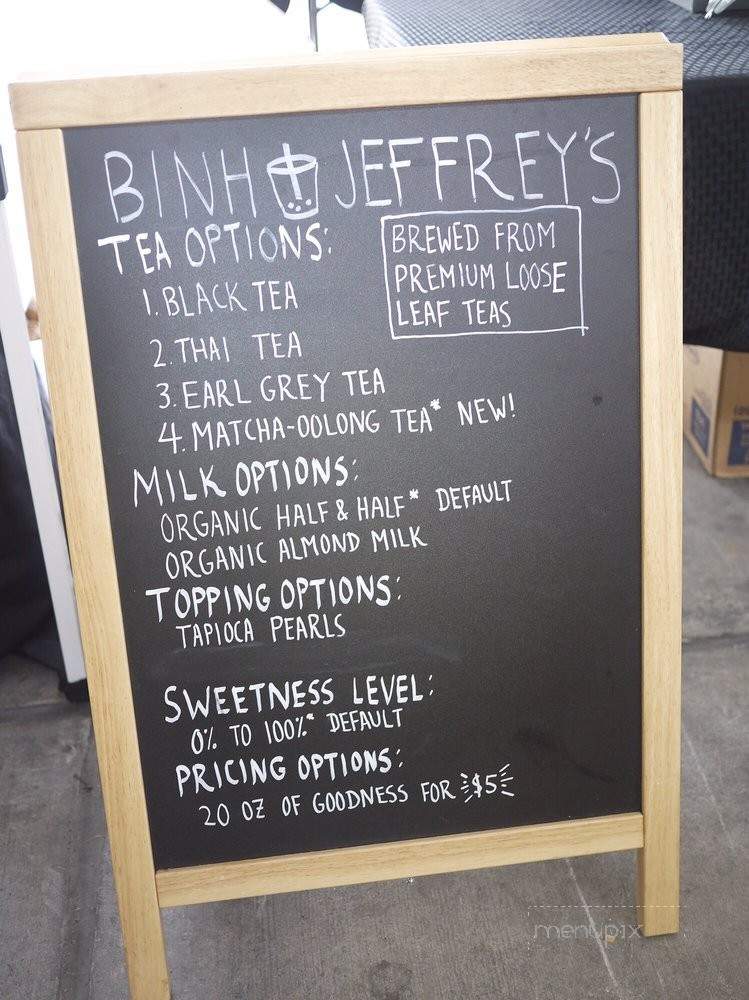 BINH JEFFREY'S
TEA OPTIONS:
BREWED FROM
PREMIUM LOOSE
LEAF TEAS
1. BLACK TEA
2. THAI TEA
3. EARL GREY TEA
4. MATCHA-OOLONG TEA* NEW!
MILK OPTIONS:
ORGANIC HALF & HALF* DEFAULT
ORGANIC ALMOND MILK
TOPPING OPTIONS:
TAPIOCA PEARLS
SWEETNESS LEVEL:
0% TO 100%* DEFAULT
PRICING OPTIONS:
20 OZ OF GOODNESS FOR $5
menupix